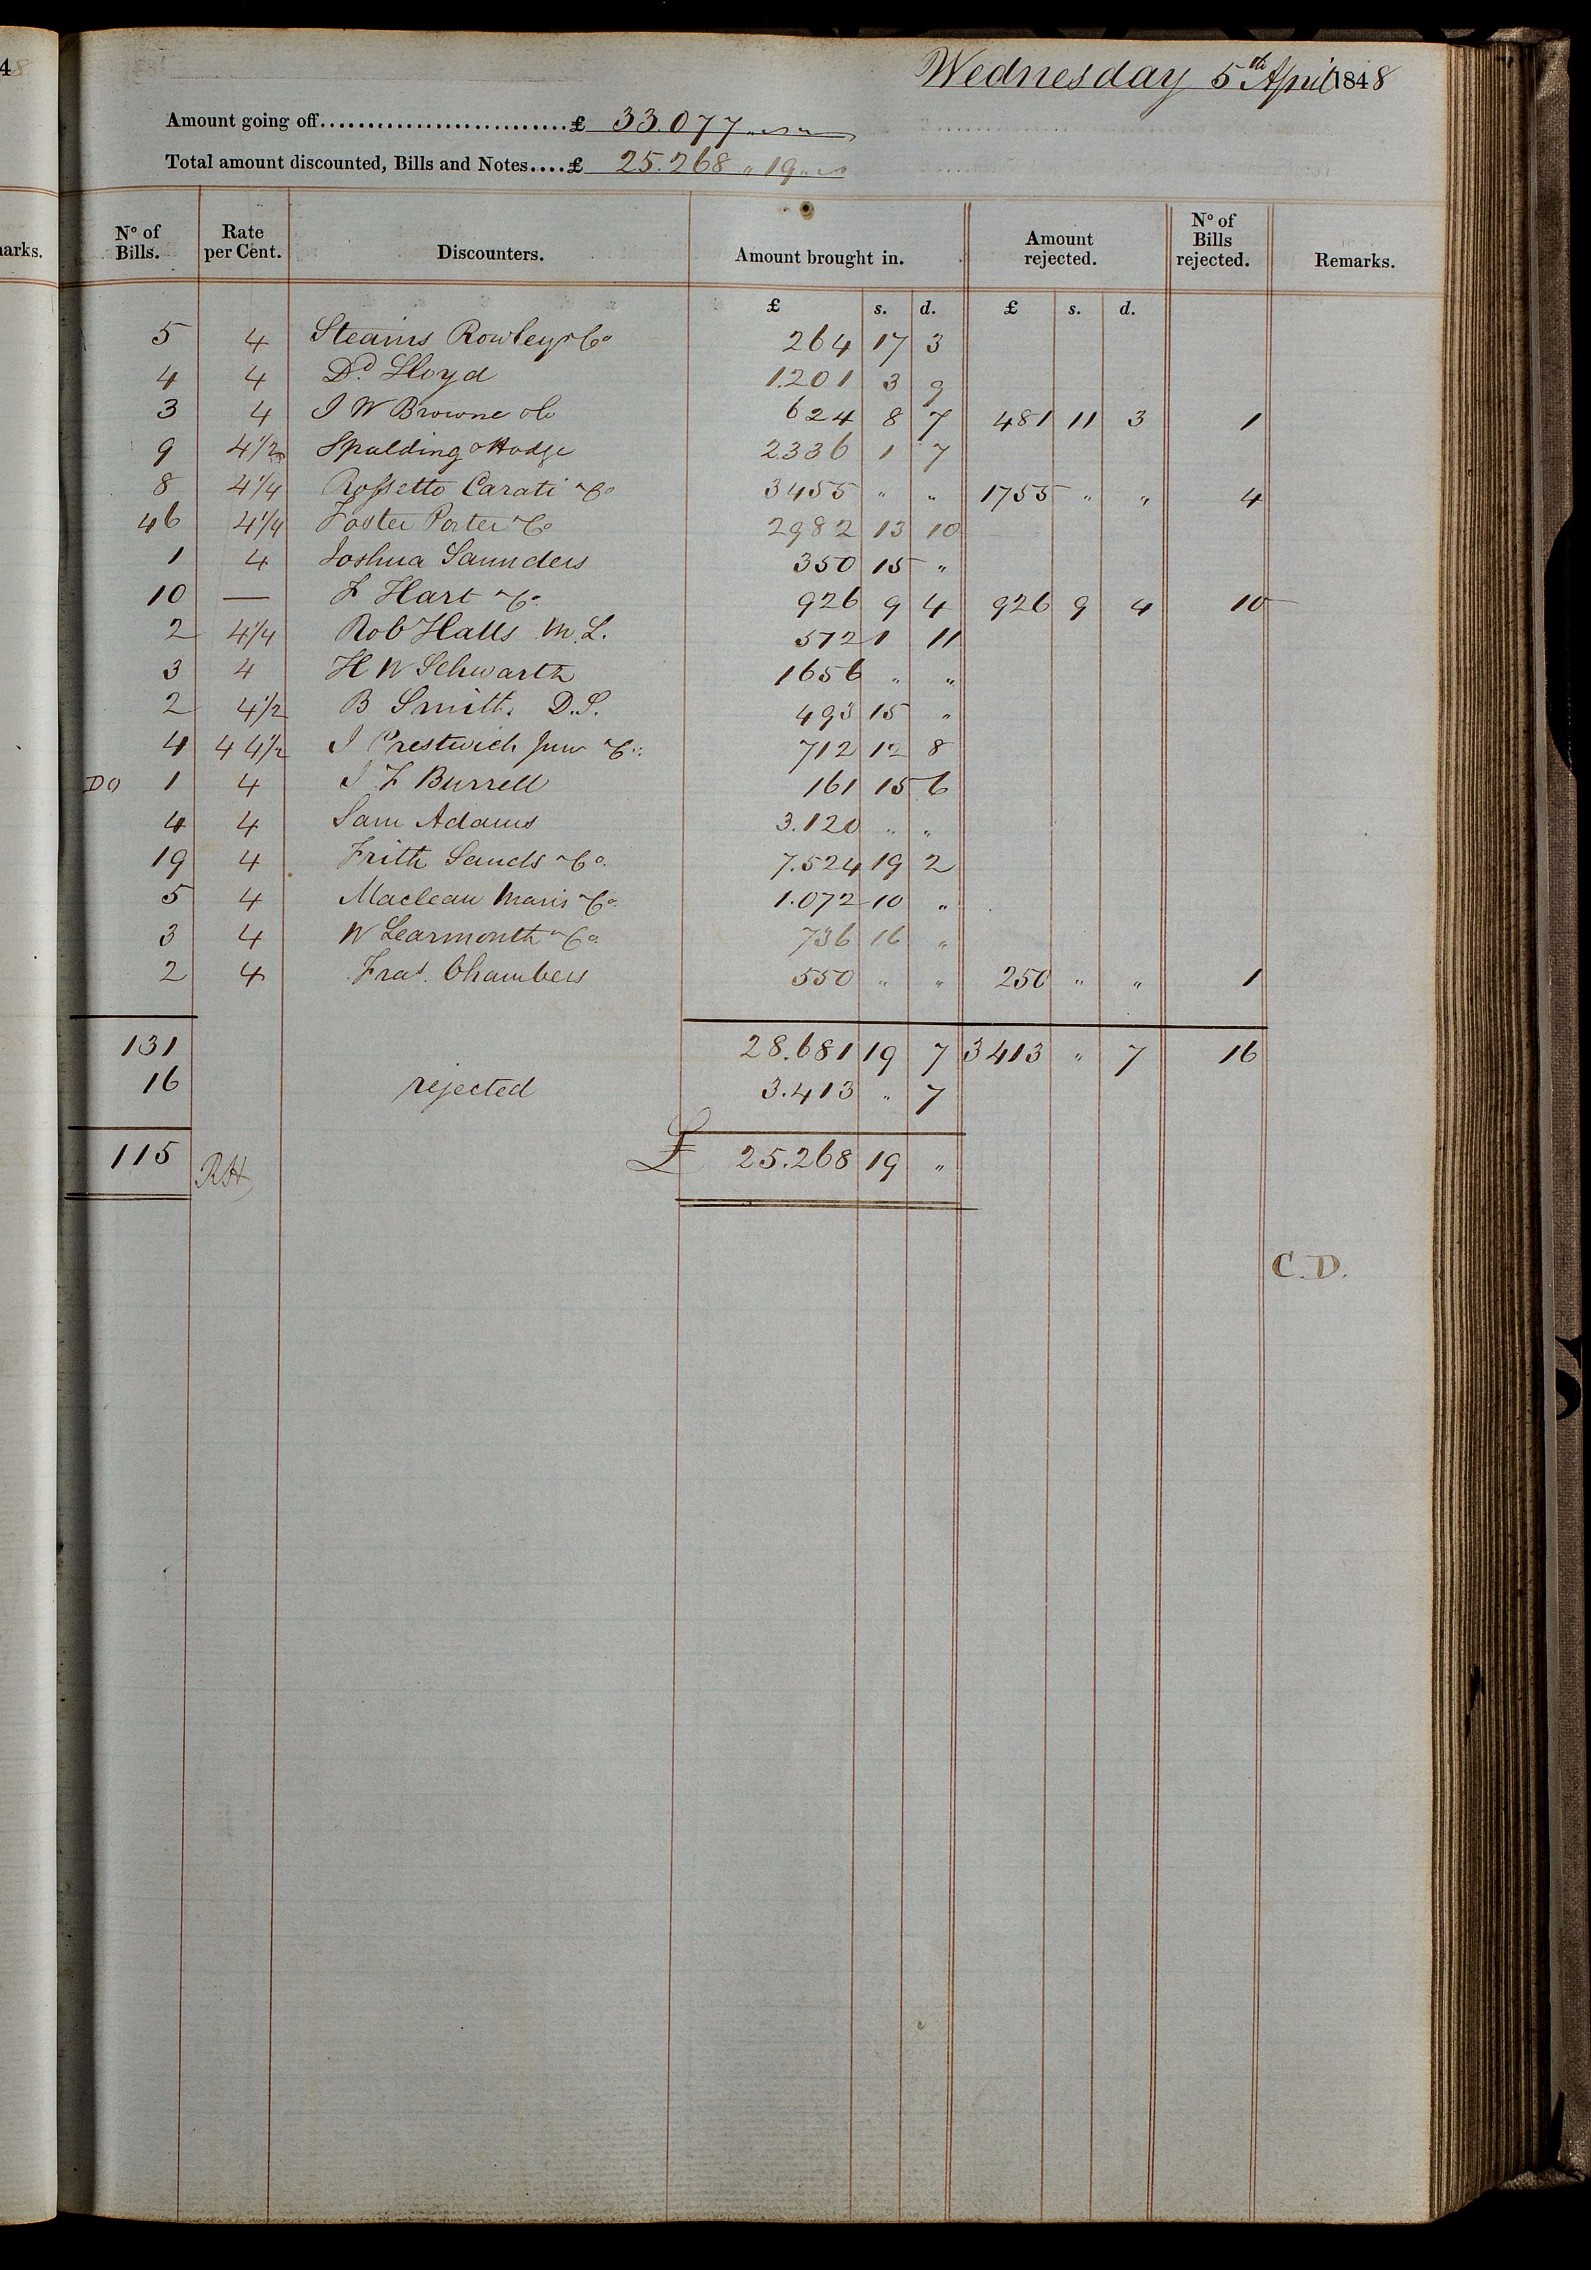 48
Wednesday 5th April 1848
Amount going off...........................£ 33.077 " "
Total amount discounted, Bills and Notes....£ 25.268 " 19 "
arks.
No of Bills. Rate per Cent. Discounters. Amount brought in. Amount rejected. No of Bills rejected. Remarks.
£ s. d. £ s. d.
5 4 Stearns Rowley & Co 264 17 3
4 4 Dd. Lloyd 1.201 3 9
3 4 J W Browne & Co 624 8 7 481 11 3 1
9 4 1/2 Spalding & Hodge 2336 1 7
8 4 1/4 Rossetto Carati & Co 3455 " " 1755 " " 4
46 4 1/4 Foster Porter & Co 2982 13 10
1 4 Joshua Saunders 350 15 "
10 — F Hart & Co. 926 9 4 926 9 4 10
2 4 1/4 Rob Halls M.L. 572 1 11
3 4 H W Schwartz 1656 " "
2 4 1/2 B Smith. D.S. 493 15 "
4 4 4 1/2 J Prestwich Junr & Co: 712 12 8
DO 1 4 J F Burrell 161 15 6
4 4 Sam Adams 3.120 " "
19 4 Frith Sands & Co. 7.524 19 2
5 4 Maclean Maris & Co. 1.072 10 "
3 4 W Learmonth & Co. 736 16 "
2 4 Fras. Chambers 550 " " 250 " " 1
131 28.681 19 7 3413 " 7 16
16 rejected 3.413 " 7
115 RH £ 25.268 19 "
C.D.